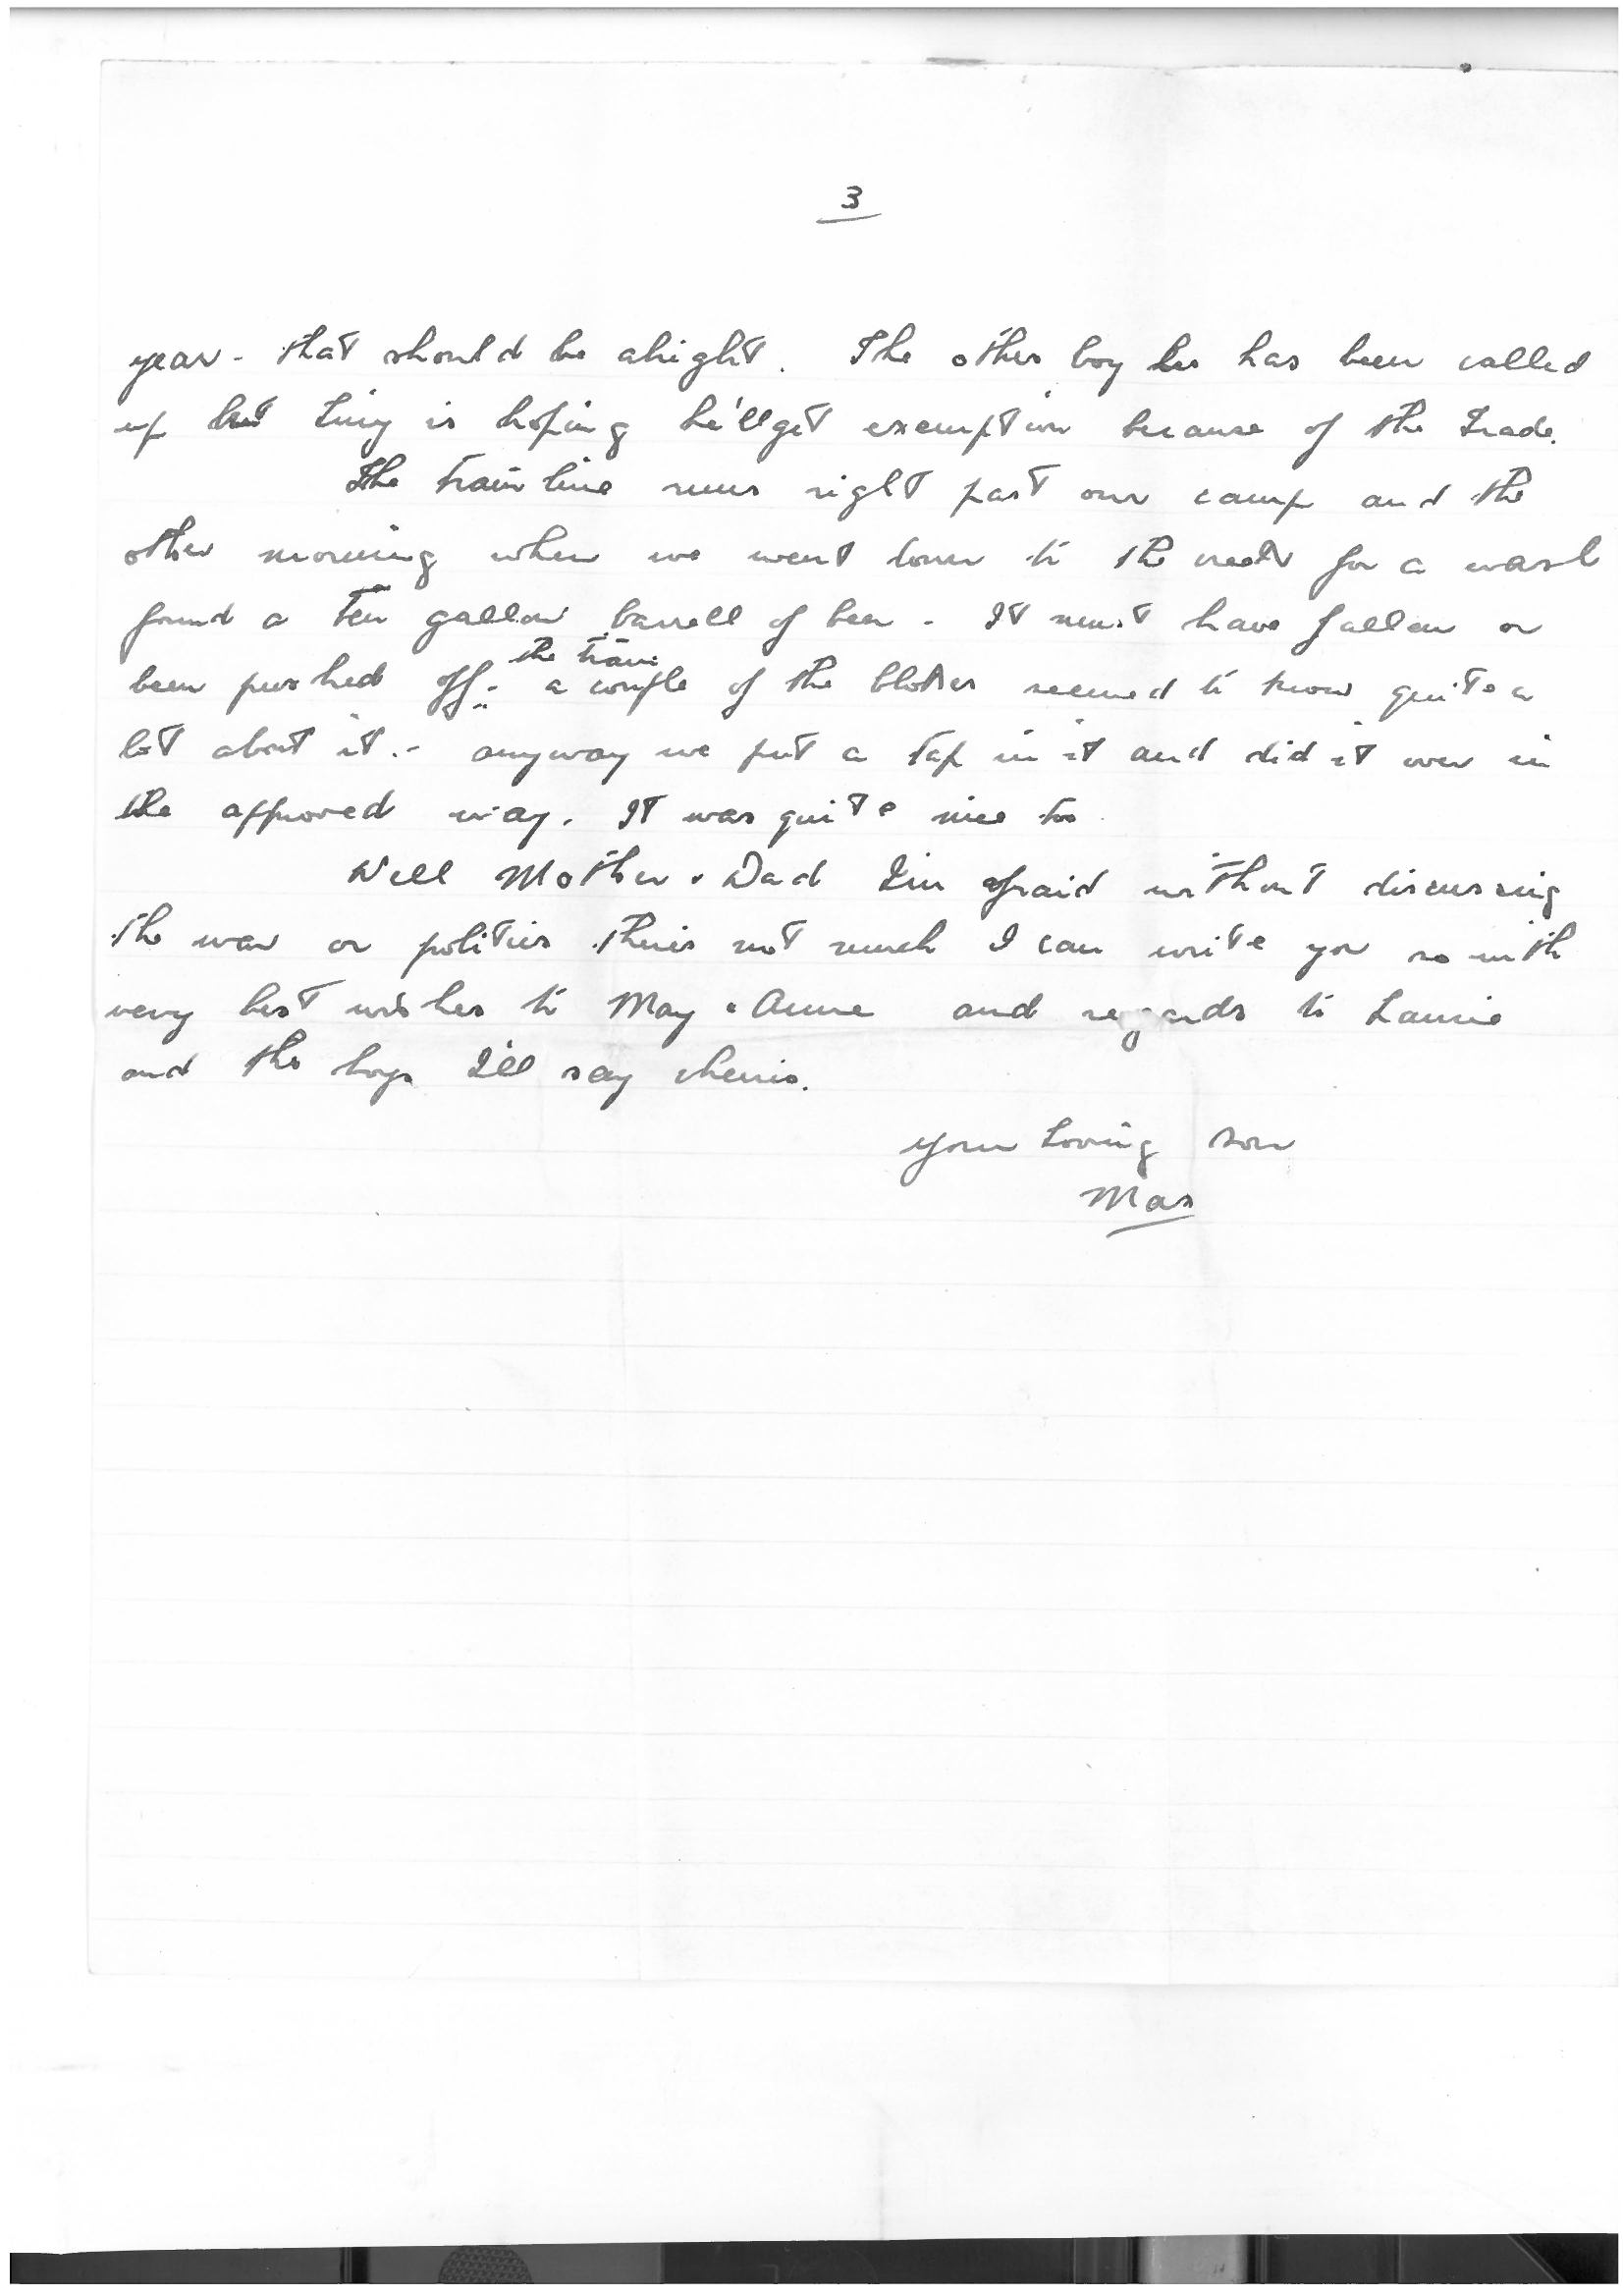 3
year - that should be alright. The other boy has been called
up but Tiny is hoping he'll get exemption because of the Trade.
The train line runs right past our camp and the
other morning when we went down to the creek for a wash
found a Ten gallon barrell of beer - It must have fallen or
been pushed off the train - a couple of the blokes seemed to know quite a
lot about it. - anyway we put a tap in it and did it over in
the approved way. It was quite nice too.
Well Mother & Dad I'm afraid without discussing
the war or politics theres not much I can write you so with
very best wishes to May & Anne and regards to Laurie
and the boys I'll say cherrio.
your Loving son
Max